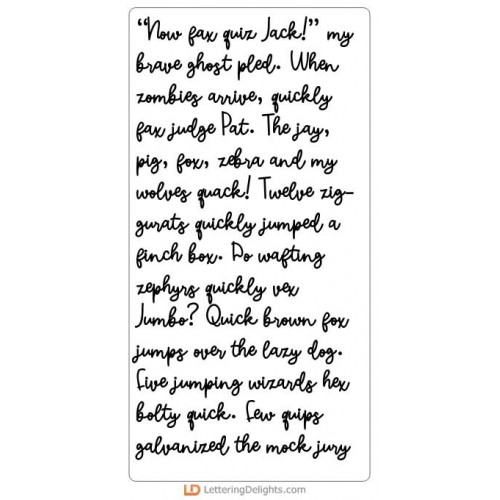 “Now fax quiz Jack!” my
brave ghost pled. When
zombies arrive, quickly
fax judge Pat. The jay,
pig, fox, zebra and my
wolves quack! Twelve zig-
gurats quickly jumped a
finch box. Do wafting
zephyrs quickly vex
Jumbo? Quick brown fox
jumps over the lazy dog.
Five jumping wizards hex
bolty quick. Few quips
galvanized the mock jury
LD LetteringDelights.com